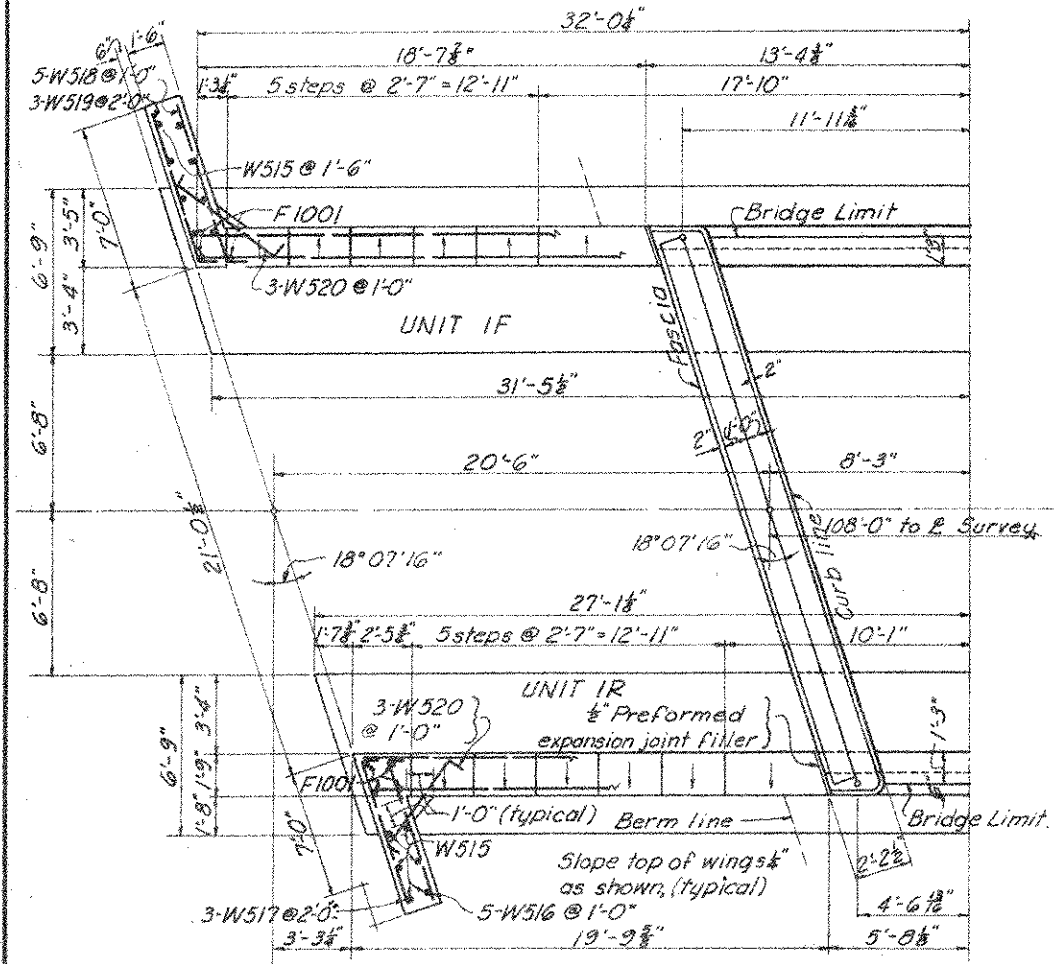 32'-0⅛"
6" 1'-6"
18'-7⅞" 13'-4¼"
5-W518 @ 1'-0"
3-W519 @ 2'-0"
1'-3¼" 5 steps @ 2'-7" = 12'-11" 17'-10"
W515 @ 1'-6"
F1001
Bridge Limit
7'-0"
6'-9" 3'-5"
3'-4"
3-W520 @ 1'-0"
UNIT 1F
Fascia
2"
31'-5½"
2" 1'-0"
6'-8"
20'-6" 8'-3"
108'-0" to ℄ Survey
21'-0½"
18°07'16" 18°07'16"
Curb line
6'-8"
27'-1⅛"
5 steps @ 2'-7" = 12'-11" 10'-1"
UNIT 1R
3-W520
@ 1'-0"
½" Preformed
expansion joint filler
6'-9" 3'-4"
1'-9"
1'-8"
1'-3"
F1001
1'-0" (typical) Berm line
Bridge Limit.
7'-0"
W515
Slope top of wings ¼"
as shown, (typical)
2'-2½"
3-W517 @ 2'-0"
5-W516 @ 1'-0"
4'-6 13/16"
3'-3¼" 19'-9⅝" 5'-8⅛"